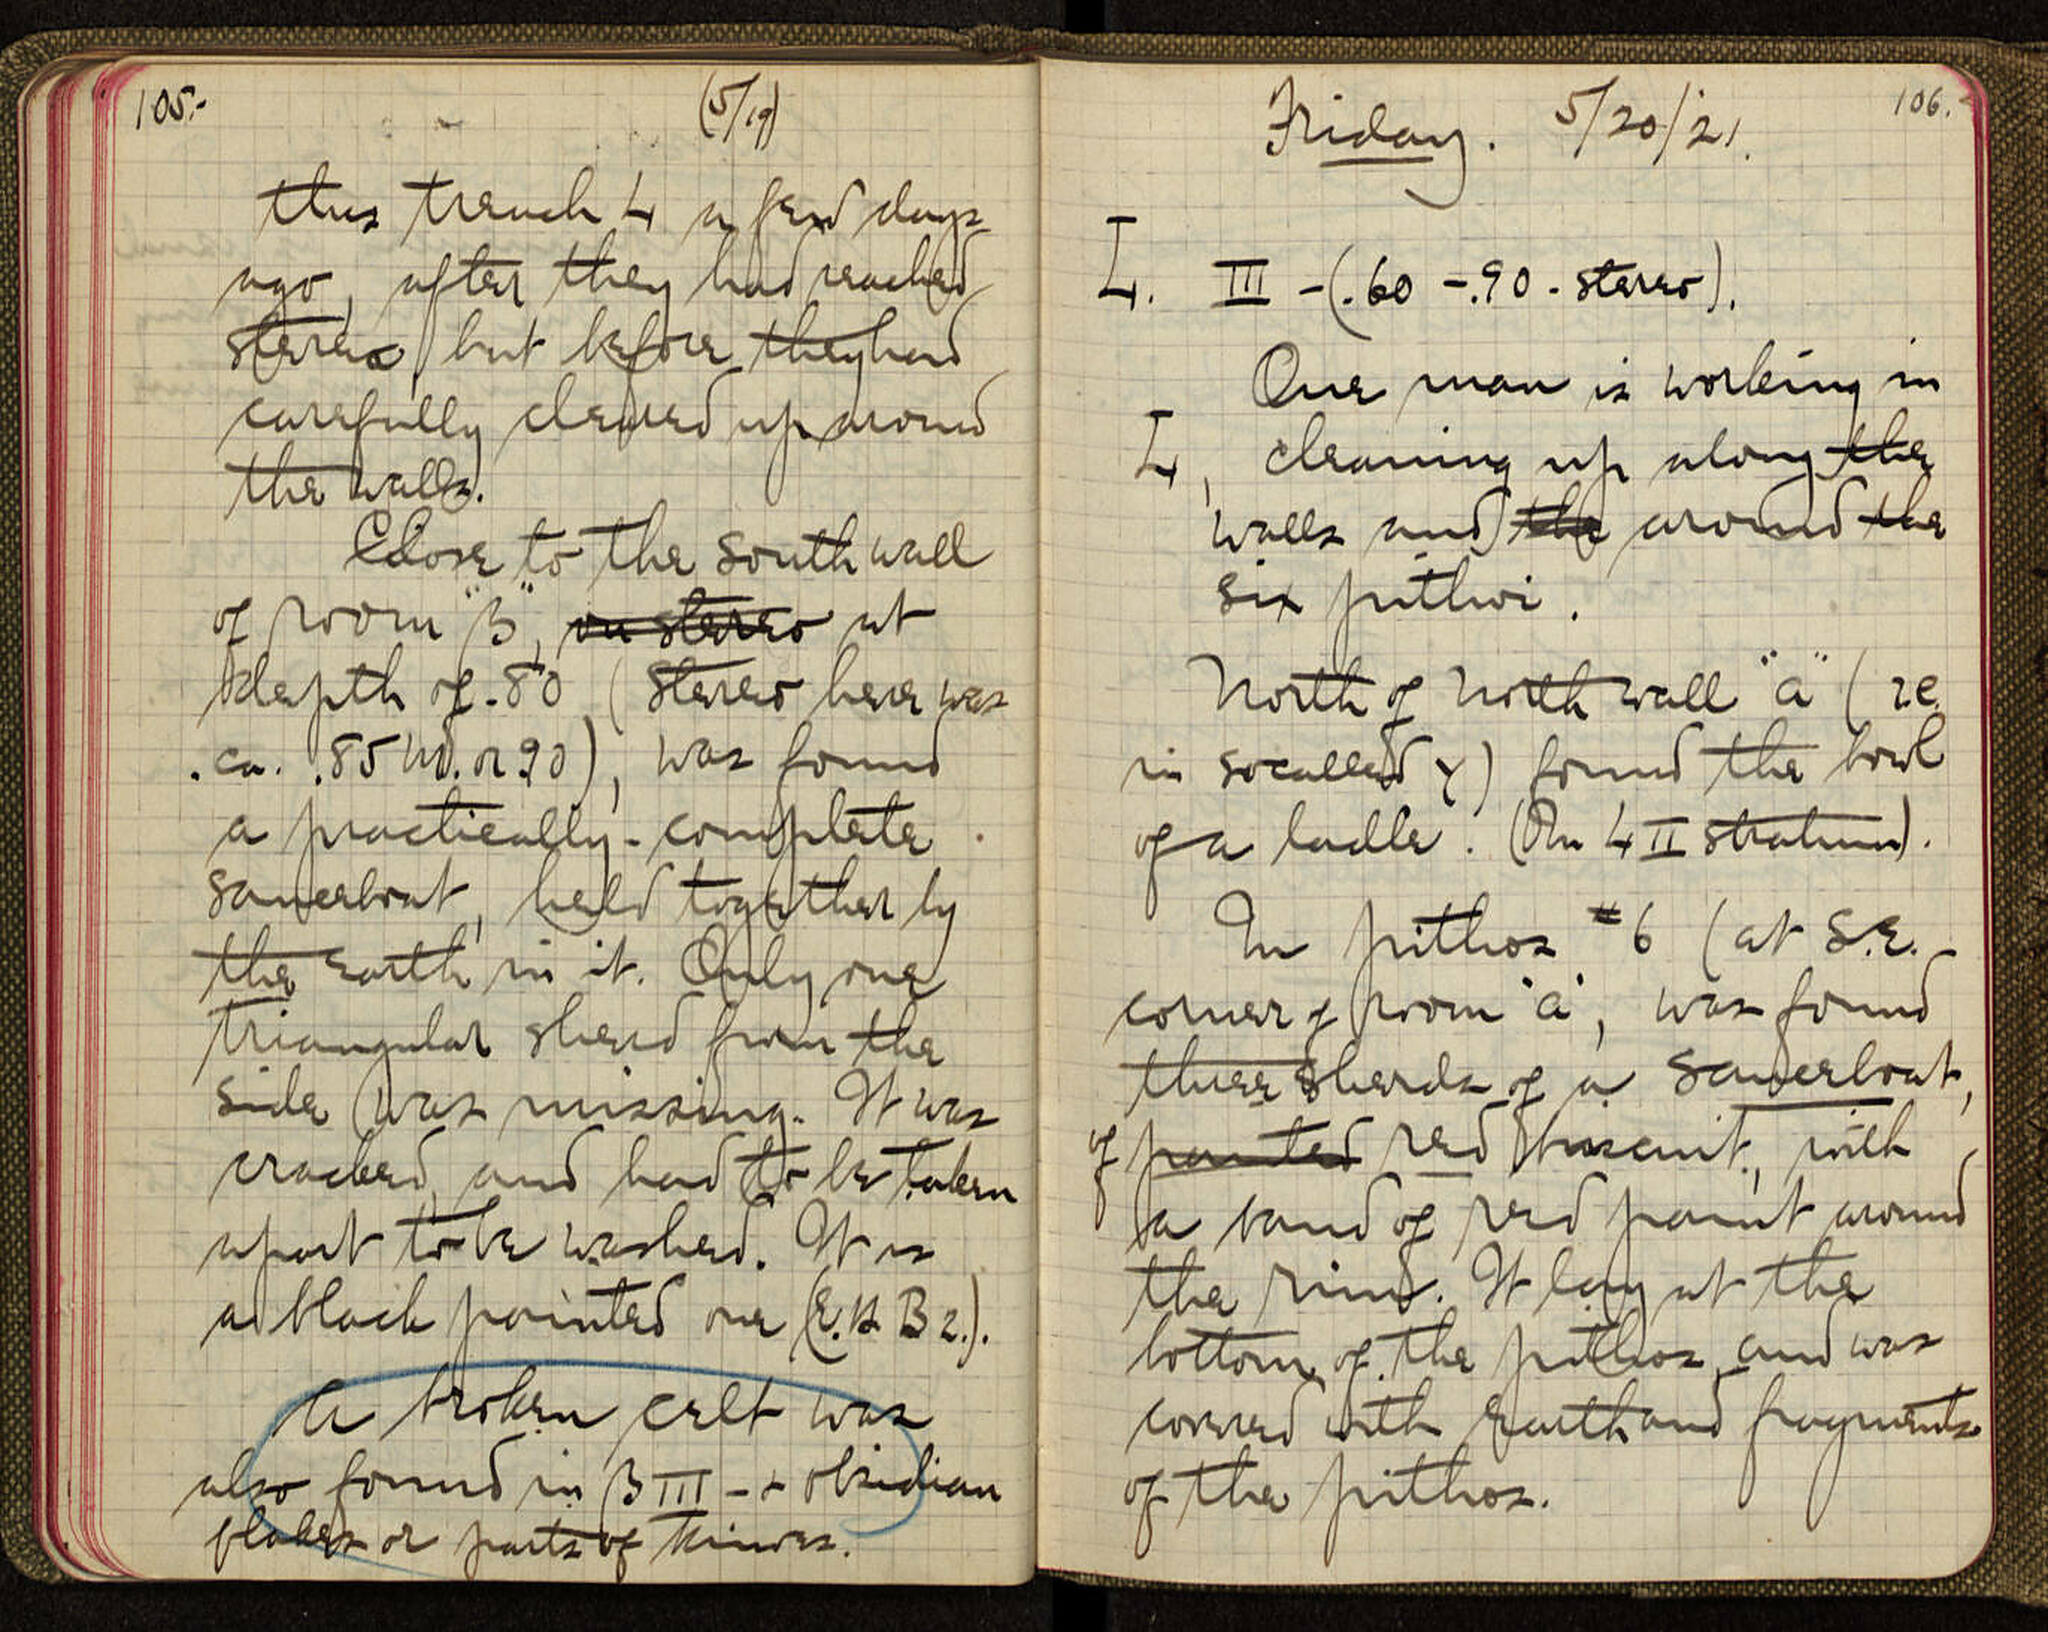 105.-
(5/19)
this trench 4 a few days
ago, after they had reached
stereo, but before they had
carefully cleared up around
the walls.
Close to the south wall
of room "B", on stereo at
depth of .80 (stereo here was
ca. .85 m. or .90), was found
a practically-complete
sauceboat, held together by
the earth in it. Only one
triangular sherd from the
side was missing. It was
cracked, and had to be taken
apart to be washed. It is
a black painted one (E.H. B 2.).
A broken celt was
also found in B III - + obsidian
flakes or parts of knives.
106.
Friday. 5/20/21.
L. III - (.60 - .90 - stereo).
One man is working in
L, cleaning up along the
walls and the around the
six pithoi.
North of North wall "a" (ie.
in socalled γ) found the bowl
of a ladle. (In 4 II stratum).
In pithos #6 (at S.E.
corner of room "a", was found
three sherds of a sauceboat,
of painted red biscuit, with
a band of red paint around
the rim. It lay at the
bottom of the pithos, and was
covered with earth and fragments
of the pithos.